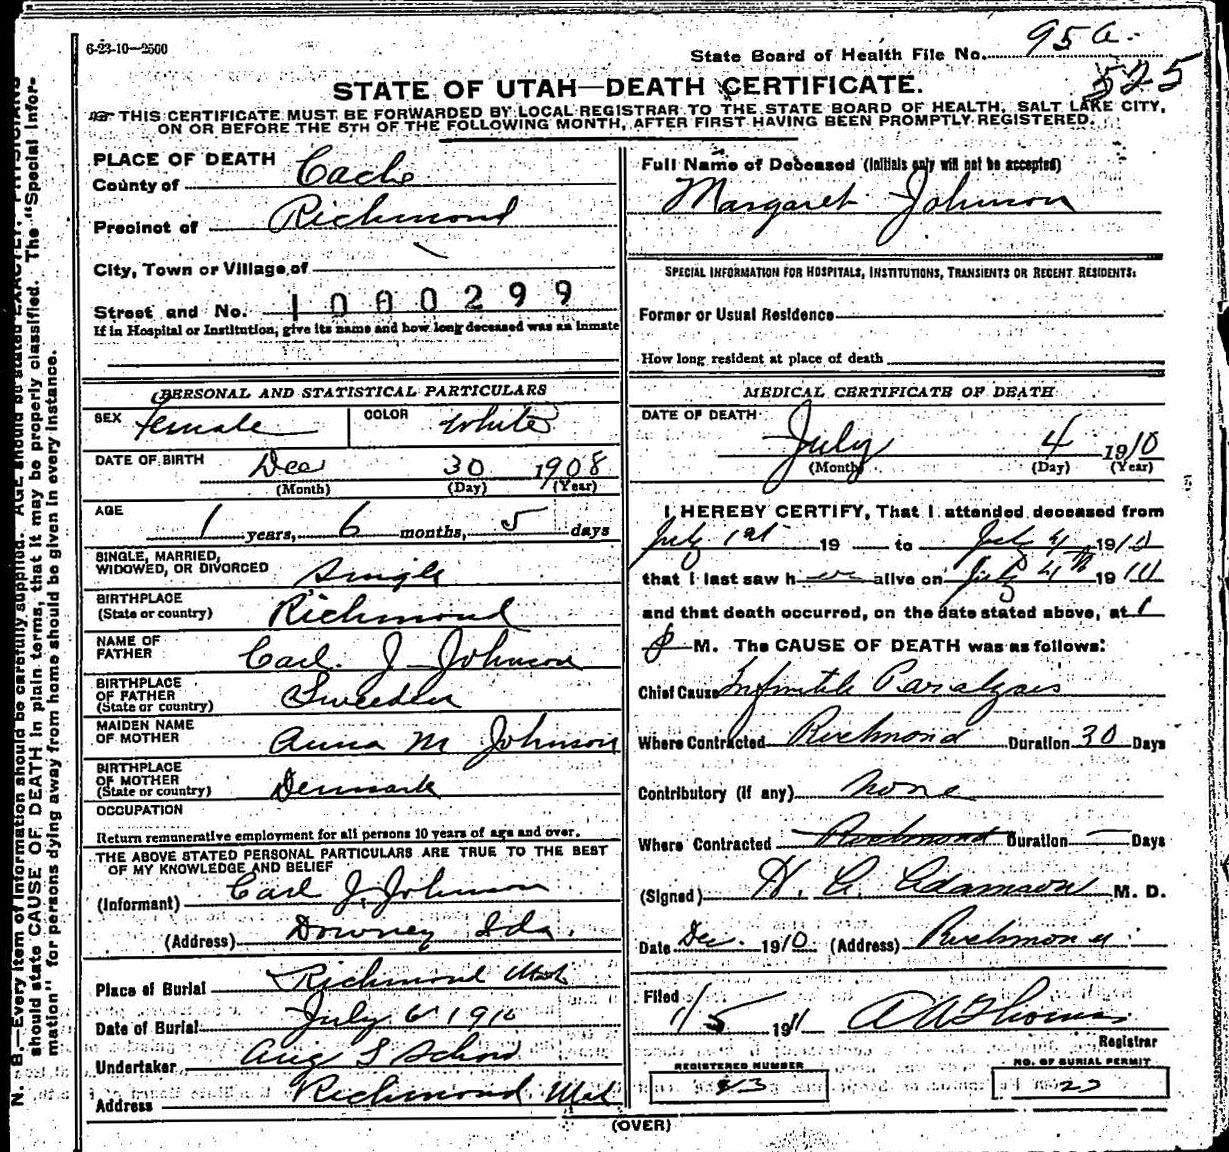 6-23-10—2500
State Board of Health File No. 95 a.
525
STATE OF UTAH—DEATH CERTIFICATE.
THIS CERTIFICATE MUST BE FORWARDED BY LOCAL REGISTRAR TO THE STATE BOARD OF HEALTH, SALT LAKE CITY,
ON OR BEFORE THE 5TH OF THE FOLLOWING MONTH, AFTER FIRST HAVING BEEN PROMPTLY REGISTERED.
PLACE OF DEATH
County of Cache
Precinct of Richmond
City, Town or Village of
Street and No. 1000299
If in Hospital or Institution, give its name and how long deceased was an inmate
PERSONAL AND STATISTICAL PARTICULARS
SEX Female COLOR White
DATE OF BIRTH Dec 30 1908
(Month) (Day) (Year)
AGE
1 years, 6 months, 5 days
SINGLE, MARRIED,
WIDOWED, OR DIVORCED Single
BIRTHPLACE
(State or country) Richmond
NAME OF
FATHER Carl. J Johnson
BIRTHPLACE
OF FATHER
(State or country)
MAIDEN NAME
OF MOTHER Anna M Johnson
BIRTHPLACE
OF MOTHER
(State or country) Denmark
OCCUPATION
Return remunerative employment for all persons 10 years of age and over.
THE ABOVE STATED PERSONAL PARTICULARS ARE TRUE TO THE BEST
OF MY KNOWLEDGE AND BELIEF
(Informant) Carl J. Johnson
(Address) Downey Ida.
Place of Burial Richmond Utah
Date of Burial July 6 1910
Undertaker
Address Richmond Utah
Full Name of Deceased (Initials only will not be accepted)
Margaret Johnson
SPECIAL INFORMATION FOR HOSPITALS, INSTITUTIONS, TRANSIENTS OR RECENT RESIDENTS:
Former or Usual Residence
How long resident at place of death
MEDICAL CERTIFICATE OF DEATH
DATE OF DEATH
July 4 1910
(Month) (Day) (Year)
I HEREBY CERTIFY, That I attended deceased from
July 1st 19 to July 4 1910
that I last saw her alive on July 4th 1910
and that death occurred, on the date stated above, at 1
P M. The CAUSE OF DEATH was as follows:
Chief Cause Infintile Paralysis
Where Contracted Richmond Duration 30 Days
Contributory (if any) None
Where Contracted Richmond Duration — Days
(Signed) H. G. Adamson M. D.
Date Dec. 1910 (Address) Richmond
Filed
1/5 1911 A A Thomas
Registrar
REGISTERED NUMBER
NO. OF BURIAL PERMIT
(OVER)
N. B.—Every item of information should be carefully supplied. AGE should be stated EXACTLY. PHYSICIANS
should state CAUSE OF DEATH in plain terms, that it may be properly classified. The "Special Infor-
mation" for persons dying away from home should be given in every instance.